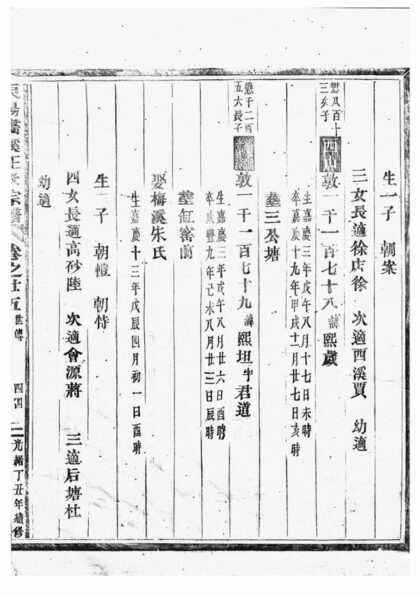 生一子 朝案
三女長適徐店徐 次適西溪賈 幼適
懋及百十
三矣子
敦一千一百七十八諱熙歲
生嘉慶三年戊午八月十七日未時
卒嘉慶十九年甲戌十二月廿七日亥時
塟三公塘
懋千二百
五六長子
敦一千一百七十九諱熙坦字君道
生嘉慶三年戊午八月廿六日酉時
卒咸豐九年己未八月廿三日辰時
塟缸窑前
娶梅溪朱氏
生嘉慶十三年戊辰四月初一日酉時
生一子 朝愷 朝恃
四女長適高砂陸 次適會源蔣 三適后塘杜
幼適
王氏宗譜 卷之廿五 世傳 四四 光緒丁丑年續修